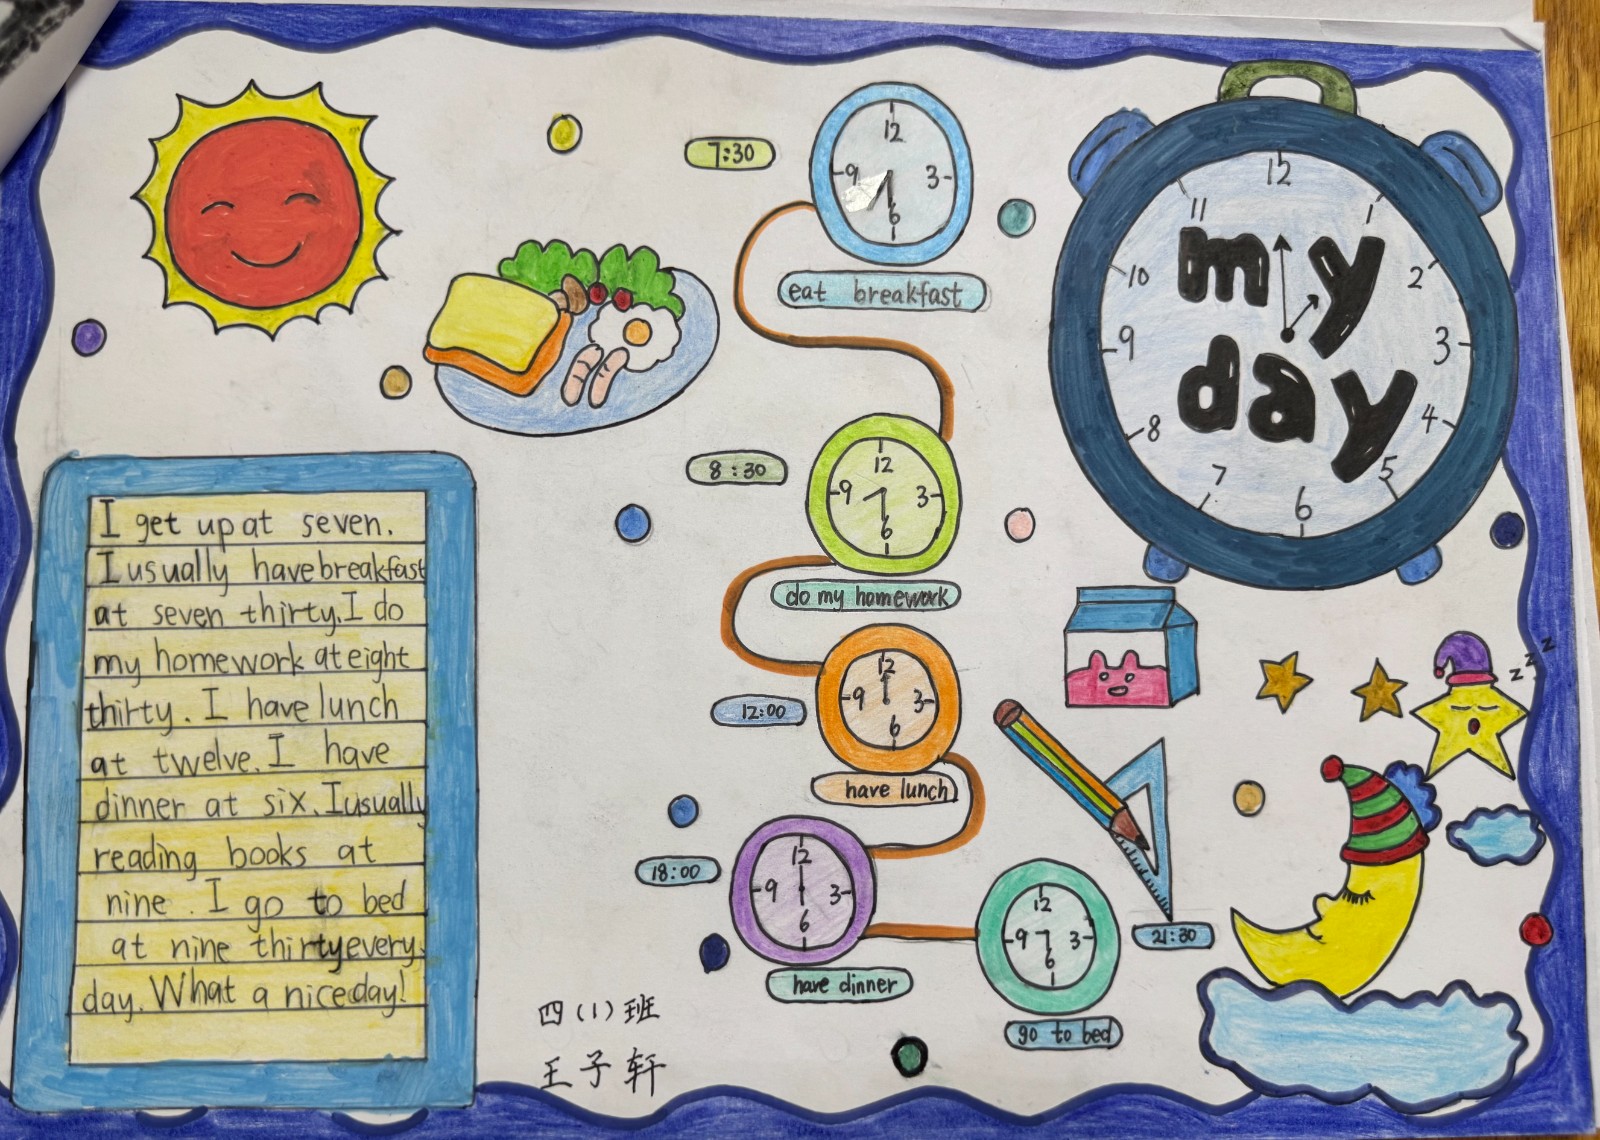 7:30
12
3
6
9
eat breakfast
8:30
12
3
6
9
do my homework
12:00
12
3
6
9
have lunch
18:00
12
3
6
9
have dinner
21:30
12
3
6
9
go to bed
12
1
2
3
4
5
6
7
8
9
10
11
my
day
z z z
I get up at seven.
I usually have breakfast
at seven thirty. I do
my homework at eight
thirty. I have lunch
at twelve. I have
dinner at six. I usually
reading books at
nine. I go to bed
at nine thirty every
day. What a nice day!
四(1)班
王子轩